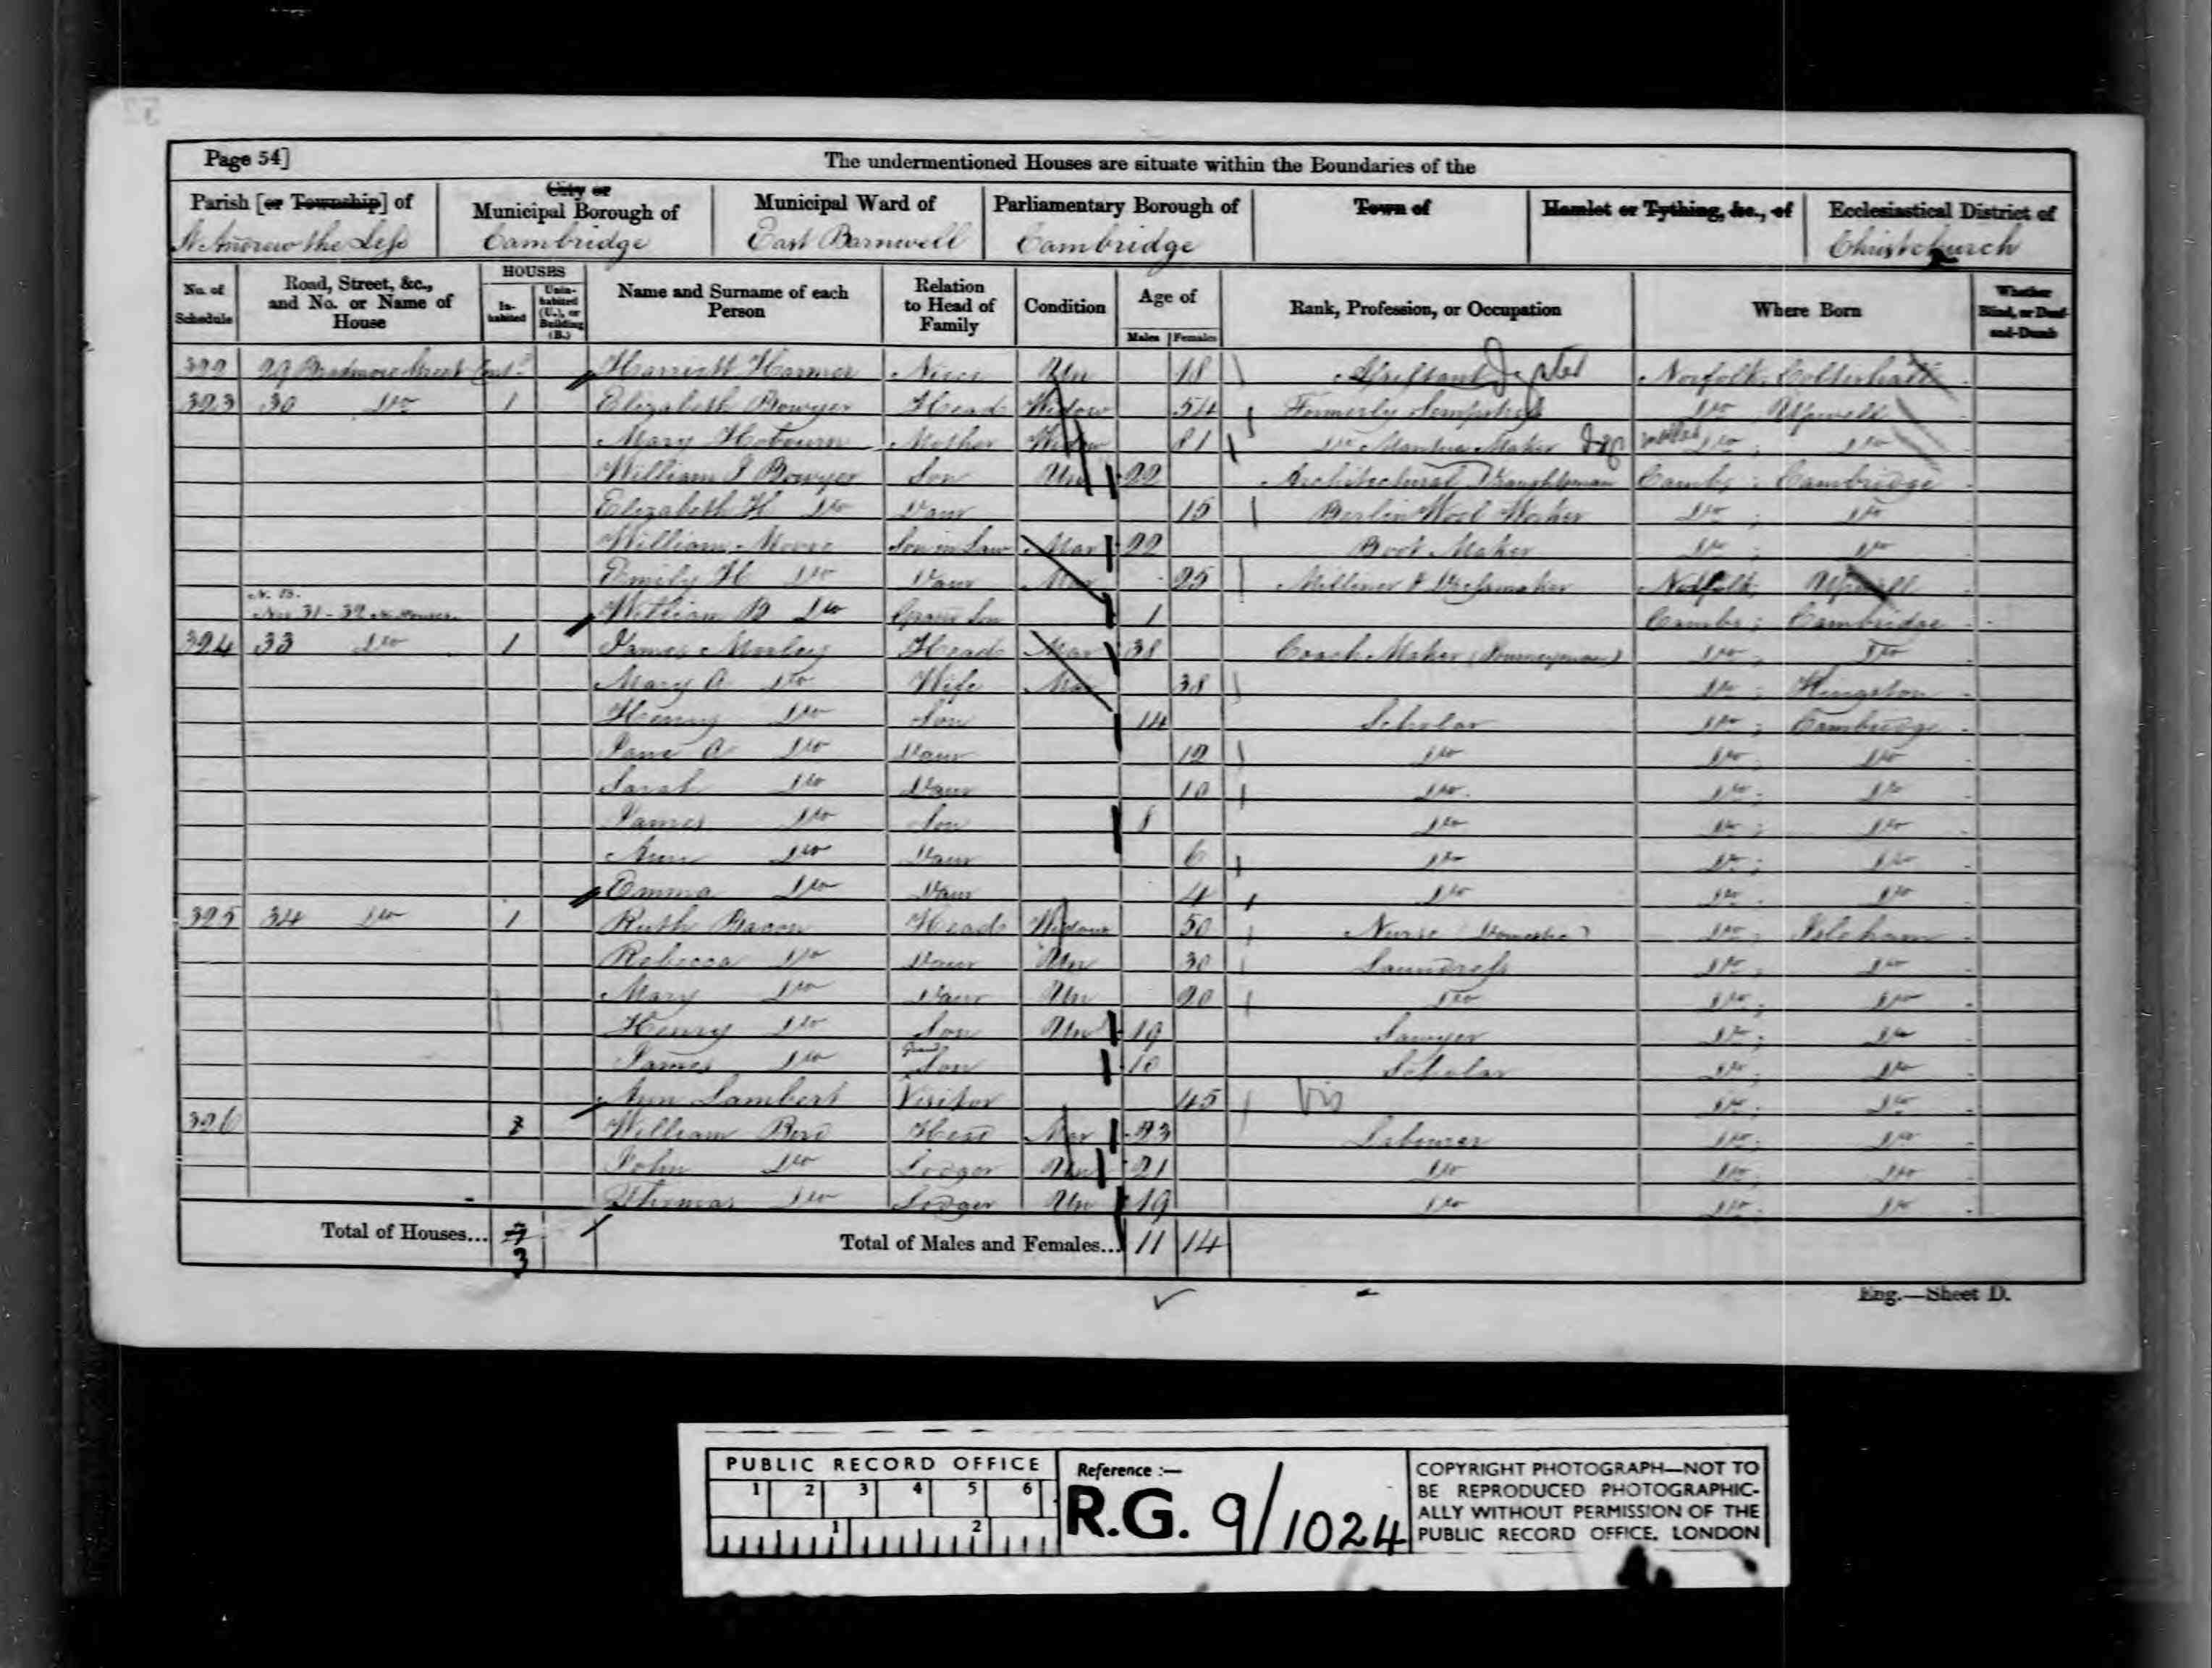 Page 54]
The undermentioned Houses are situate within the Boundaries of the
Parish [or Township] of
City or Municipal Borough of
Municipal Ward of
Parliamentary Borough of
Town of
Hamlet or Tything, &c., of
Ecclesiastical District of
St Andrew the Less Cambridge East Barnwell Cambridge Christchurch
No. of Schedule
Road, Street, &c., and No. or Name of House
HOUSES
Inhabited
Uninhabited (U.), or Building (B.)
Name and Surname of each Person
Relation to Head of Family
Condition
Age of
Males Females
Rank, Profession, or Occupation
Where Born
Whether Blind, or Deaf-and-Dumb
392 29 Bradmore Street Harriett Harmer Niece Un 18 Assistant Norfolk Coltishall
393 30 Do 1 Elizabeth Bowyer Head Widow 54 Formerly Sempstress Do Upwell
Mary Hobourn Mother Widow 81 Do Mantua Maker Do ; Do
William J Bowyer Son Un 22 Architectural Draughtsman Cambs ; Cambridge
Elizabeth H Do Daur 15 Berlin Wool Worker Do ; Do
William Moore Son in Law Mar 22 Boot Maker Do ; Do
Emily H Do Daur Mar 25 Milliner & Dressmaker Norfolk ; Upwell
N. B.
Nos 31 - 32 No Houses
William B Do Grand Son 1 Cambs ; Cambridge
394 33 Do 1 James Morley Head Mar 38 Coach Maker (Journeyman) Do ; Do
Mary A Do Wife Mar 38 Do ; Kingston
Henry Do Son 14 Scholar Do ; Cambridge
Jane A Do Daur 12 Do Do ; Do
Sarah Do Daur 10 Do Do ; Do
James Do Son 8 Do Do ; Do
Ann Do Daur 6 Do Do ; Do
Emma Do Daur 4 Do Do Do
395 34 Do 1 Ruth Bacon Head Widow 50 Nurse (Domestic) Do ; Isleham
Rebecca Do Daur Un 30 Laundress Do ; Do
Mary Do Daur Un 20 Do Do ; Do
Henry Do Son Un 19 Sawyer Do ; Do
James Do Grand Son 10 Scholar Do ; Do
Ann Lambert Visitor 45 Vis Do ; Do
396 William Bird Head Mar 23 Labourer Do ; Do
John Do Lodger Un 21 Do Do ; Do
Thomas Do Lodger Un 19 Do Do Do
Total of Houses... 3
Total of Males and Females... 11 14
Eng.—Sheet D.
PUBLIC RECORD OFFICE
1 2 3 4 5 6
1 2
Reference :—
R.G. 9/1024
COPYRIGHT PHOTOGRAPH—NOT TO
BE REPRODUCED PHOTOGRAPHIC-
ALLY WITHOUT PERMISSION OF THE
PUBLIC RECORD OFFICE, LONDON